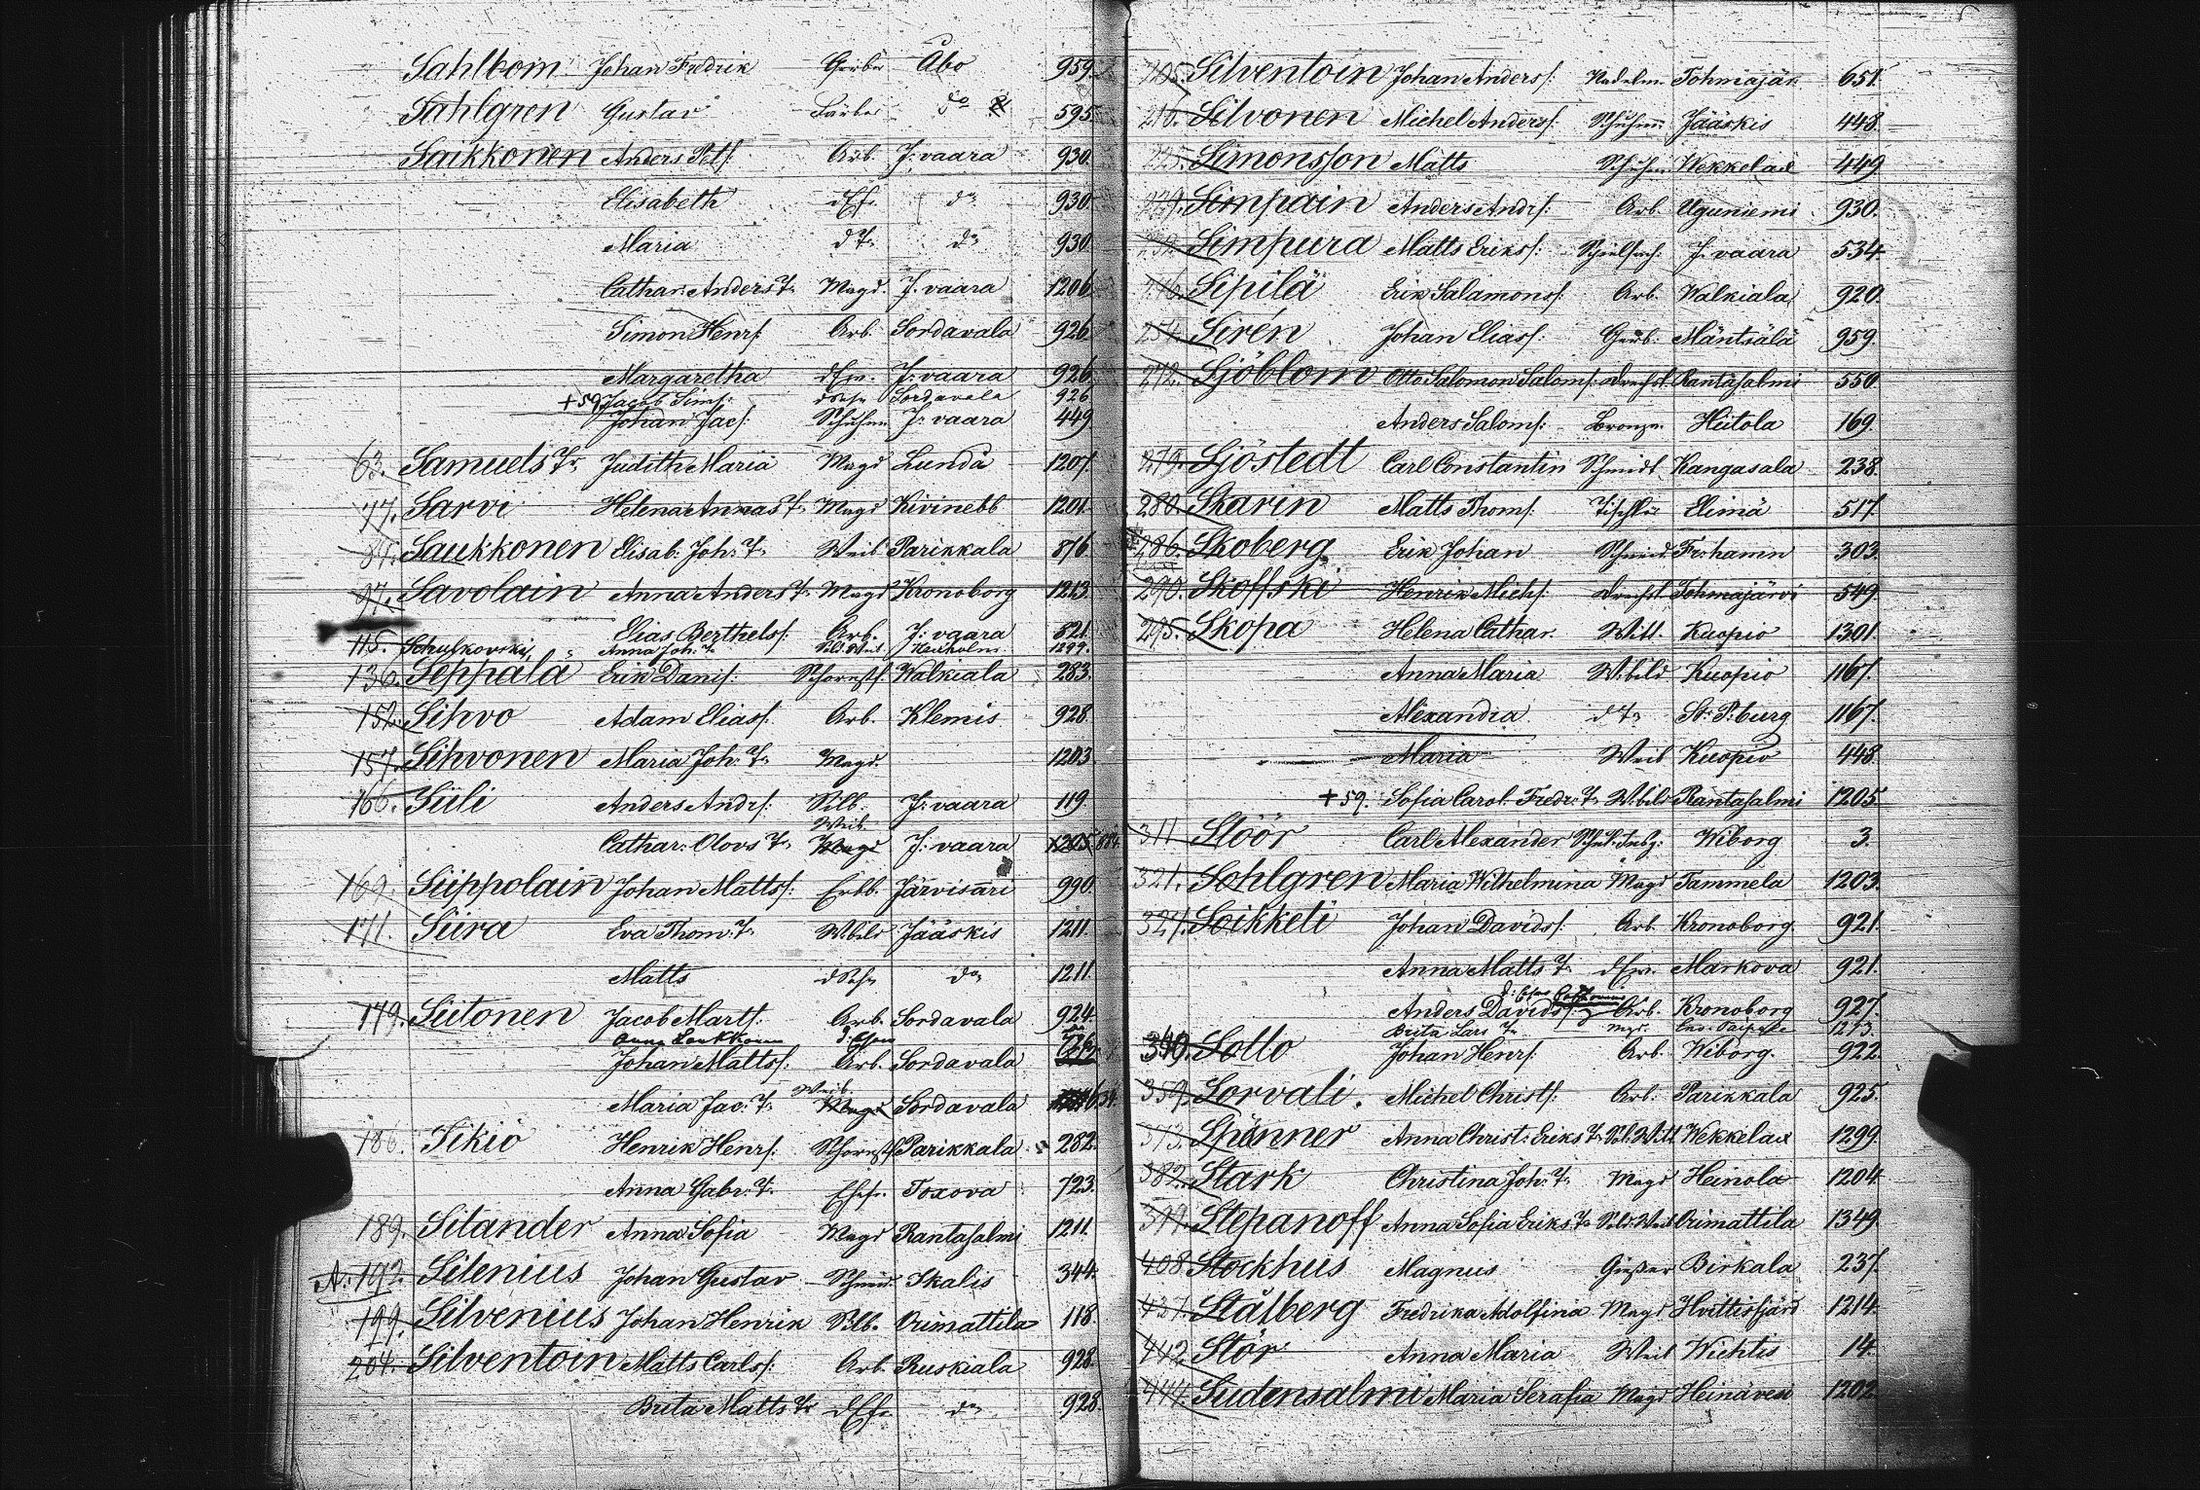 Sahlbom Johan Fredrik Gerber Åbo 959
Sahlgren Gustav Färber do 595
Saikkonen Anders Pets: Arb. J: vaara 930
Elisabeth dEfr. do 930
Maria dTr do 930
Cathar: Anders Tr Magd. J. vaara 1206
Simon Henrs: Arb. Sordavala 926
Margaretha dEfr. J: vaara 926
+59 Jacob Sims: dSohn Sordavala 926
Johan Jacs: Schuhm J: vaara 449
63. Samuels Tr Judith Maria Magd Lundå 1207
77. Sarvi Helena Annas Tr Magd Kivinebb 1201
Saukkonen Elisab: Joh: Tr Weib Parikkala 876
97. Savolain Anna Anders Tr Magd Kronoborg 1213
Elias Berthels: Arb. J: vaara 821
115. Schulkovski Anna Joh: Tr Sld. Weib 1299.
136. Seppälä Erik Danis: Schornstf Walkiala 283
152. Sihvo Adam Elias: Arb. Klemis 928
157. Sihvonen Maria Joh: Tr Magd. 1203
166. Siili Anders Ands: Slb. J: vaara 119
Weib
Cathar: Olovs Tr Magd J: vaara 1205
169. Siippolain Johan Matts: Erbb. Järvisari 990
171. Siira Eva Thom: Tr Wbild Jääskis 1211
Matts dSohn do 1211
179. Siitonen Jacob Marts: Arb. Sordavala 924
Johan Matts: Arb. Sordavala
Weib
Maria Jac: Tr Magd Sordavala
186. Sikiö Henrik Henrs: Schornstf Parikkala 282
Anna Gabr: Tr Ehefr. Toxova 723
189. Silander Anna Sofia Magd Rantasalmi 1211
A: 192 Silenius Johan Gustav Schmid Ikalis 344
199. Silvenius Johan Henrik Slb. Orimattila 118
204. Silventoin Matts Carls: Arb. Ruskiala 928
Brita Matts Tr dEfr do 928
205. Silventoin Johan Anders: Nadelm Tohmajär 651
210. Silvonen Michel Anders: Schuhm Jääskis 448
225. Simonsson Matts Schuhm Wekkelax 449
229. Simpain Anders Ands: Arb Uguniemi 930
232. Simpura Matts Eriks: J. vaara 534
246. Sipilä Erik Salamons: Arb. Walkiala 920
254. Sirén Johan Elias: Gerb: Mäntsälä 959
272. Sjöblom Otto Salomon Saloms: Drechsl. Rantasalmi 550
Anders Saloms: Bronze. Hiitola 169
279. Sjöstedt Carl Constantin Schmidt Kangasala 238
280. Skarin Matts Thoms: Tischler Elimä 517
286. Skoberg Erik Johan Schmid Fr:hamn 303
290. Skoffski Henrik Michs: Drechsl Tohmajärvi 549
295. Skopa Helena Cathar. Witt. Kuopio 1301
Anna Maria Wbild Kuopio 1167
Alexandra dTr St: P:burg 1167
Maria Weib Kuopio 448
+59. Sofia Carol. Fredr: Tr Wbild Rantasalmi 1205
311 Slöör Carl Alexander Wiborg 3.
321. Sohlgren Maria Wilhelmina Magd Tammela 1203
327. Soikkeli Johan Davids: Arb. Kronoborg 921
Anna Matts Tr dEfr. Markova 921
Anders Davids: Arb. Kronoborg 927
Brita Lars Tr Mgd. 1213.
340. Sollo Johan Henrs: Arb. Wiborg. 922
359. Sorvali. Michel Christs: Arb: Parikkala 925
373. Spänner Anna Christ: Eriks Tr Sld. Witt Wekkelax 1299
382. Stark Christina Joh: Tr Magd Heinola 1204
399. Stepanoff Anna Sofia Eriks Tr Sld: Weib Orimattila 1349
408 Stockhus Magnus Gießer Birkala 237
437. Stålberg Fredrika Adolfina Magd Hvittisfjärd 1214
442. Stör Anna Maria Weib Wichtis 14
444. Sudensalmi Maria Serafia Magd Heinävesi 1202